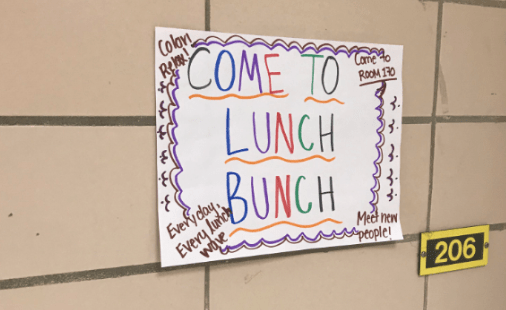 Color!
Relax!
COME TO
LUNCH
BUNCH
Come to
ROOM 170
Everyday,
Every lunch
wave
Meet new
people!
206